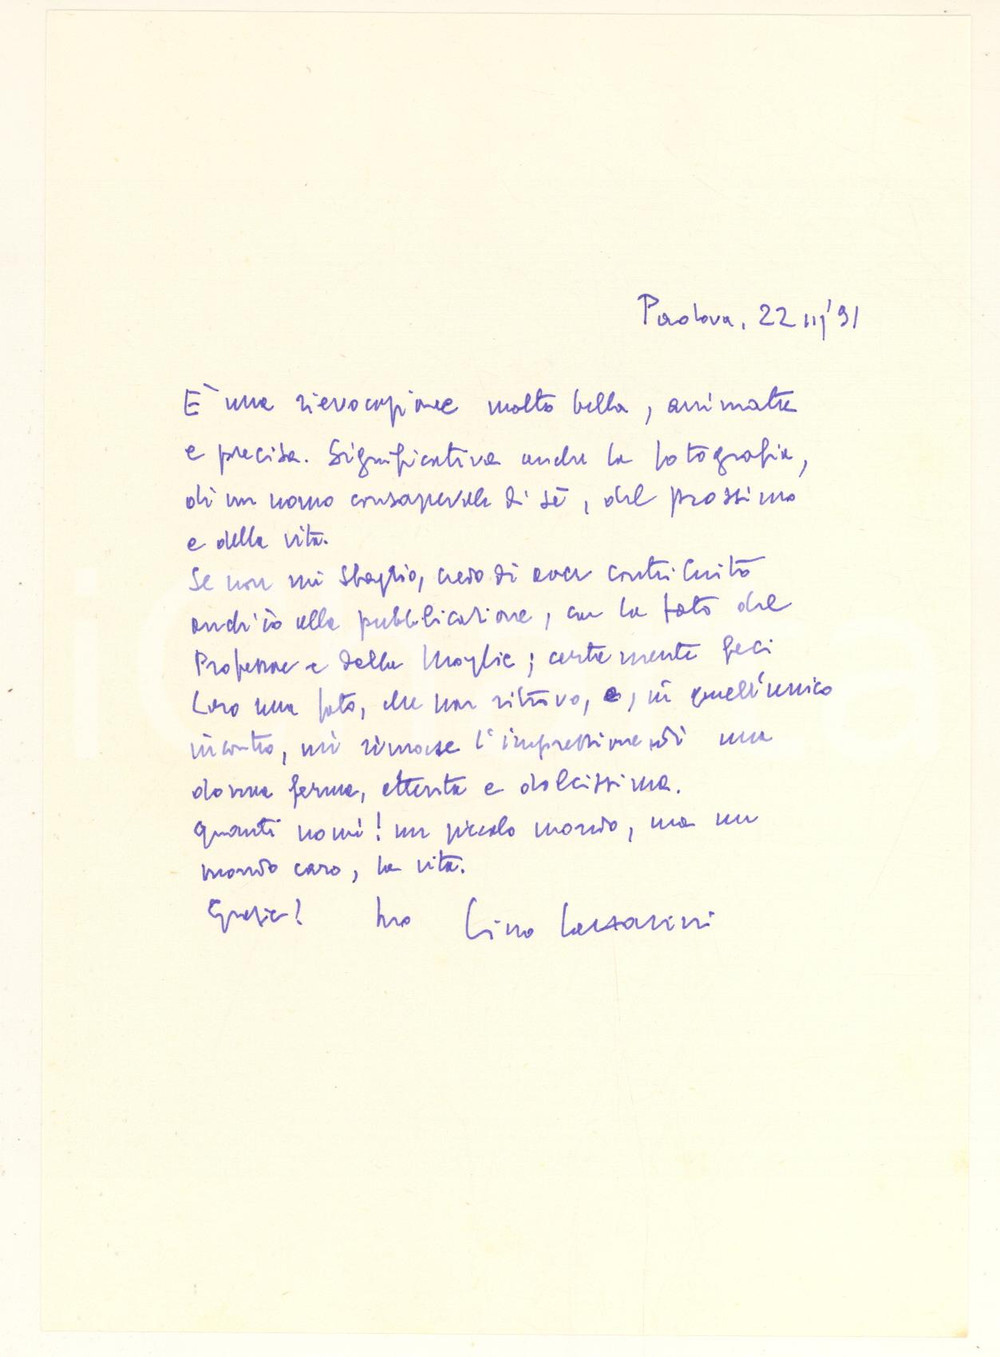 Padova, 22 III '91
È una rievocazione molto bella, animata
e precisa. Significativa anche la fotografia,
di un uomo consapevole di sé, del prossimo
e della vita.
Se non mi sbaglio, credo di aver contribuito
anch'io alla pubblicazione, con la foto del
Professore e della Moglie; certamente feci
Loro una foto, che non ritrovo, e, in quell'unico
incontro, mi rimase l'impressione di una
donna ferma, attenta e dolcissima.
Quanti nomi! un piccolo mondo, ma un
mondo caro, la vita.
Grazie! Suo Lino Lazzarini